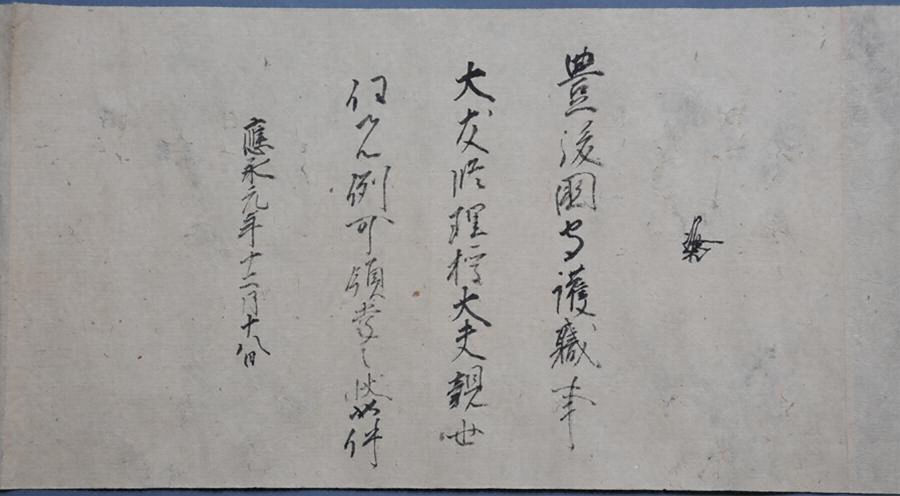 豊後國守護職事
大友修理権大夫親世
任先例可領掌之状如件
應永元年十二月十八日